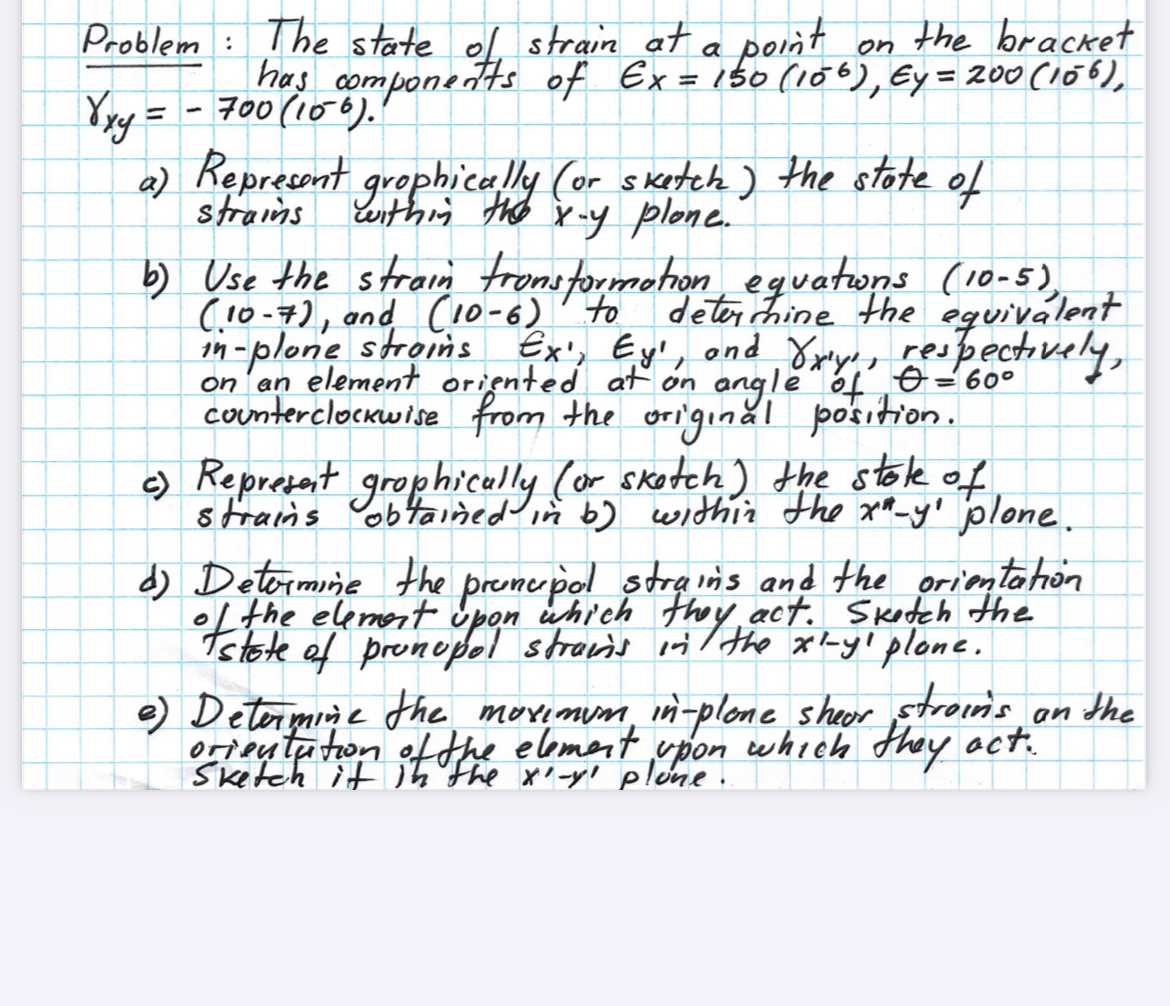 Problem : The state of strain at a point on the bracket
has components of Ex = 150 (10-6), Ey = 200 (10-6),
γxy = - 700 (10-6).
a) Represent graphically (or sketch) the state of
strains within the x-y plane.
b) Use the strain transformation equations (10-5),
(10-7), and (10-6) to determine the equivalent
in-plane strains Ex', Ey', and γx'y', respectively,
on an element oriented at an angle of θ = 60°
counterclockwise from the original position.
c) Represent graphically (or sketch) the state of
strains obtained in b) within the x'-y' plane.
d) Determine the principal strains and the orientation
of the element upon which they act. Sketch the
state of principal strains in the x'-y' plane.
e) Determine the maximum in-plane shear strains an the
orientation of the element upon which they act.
Sketch it in the x'-y' plane.